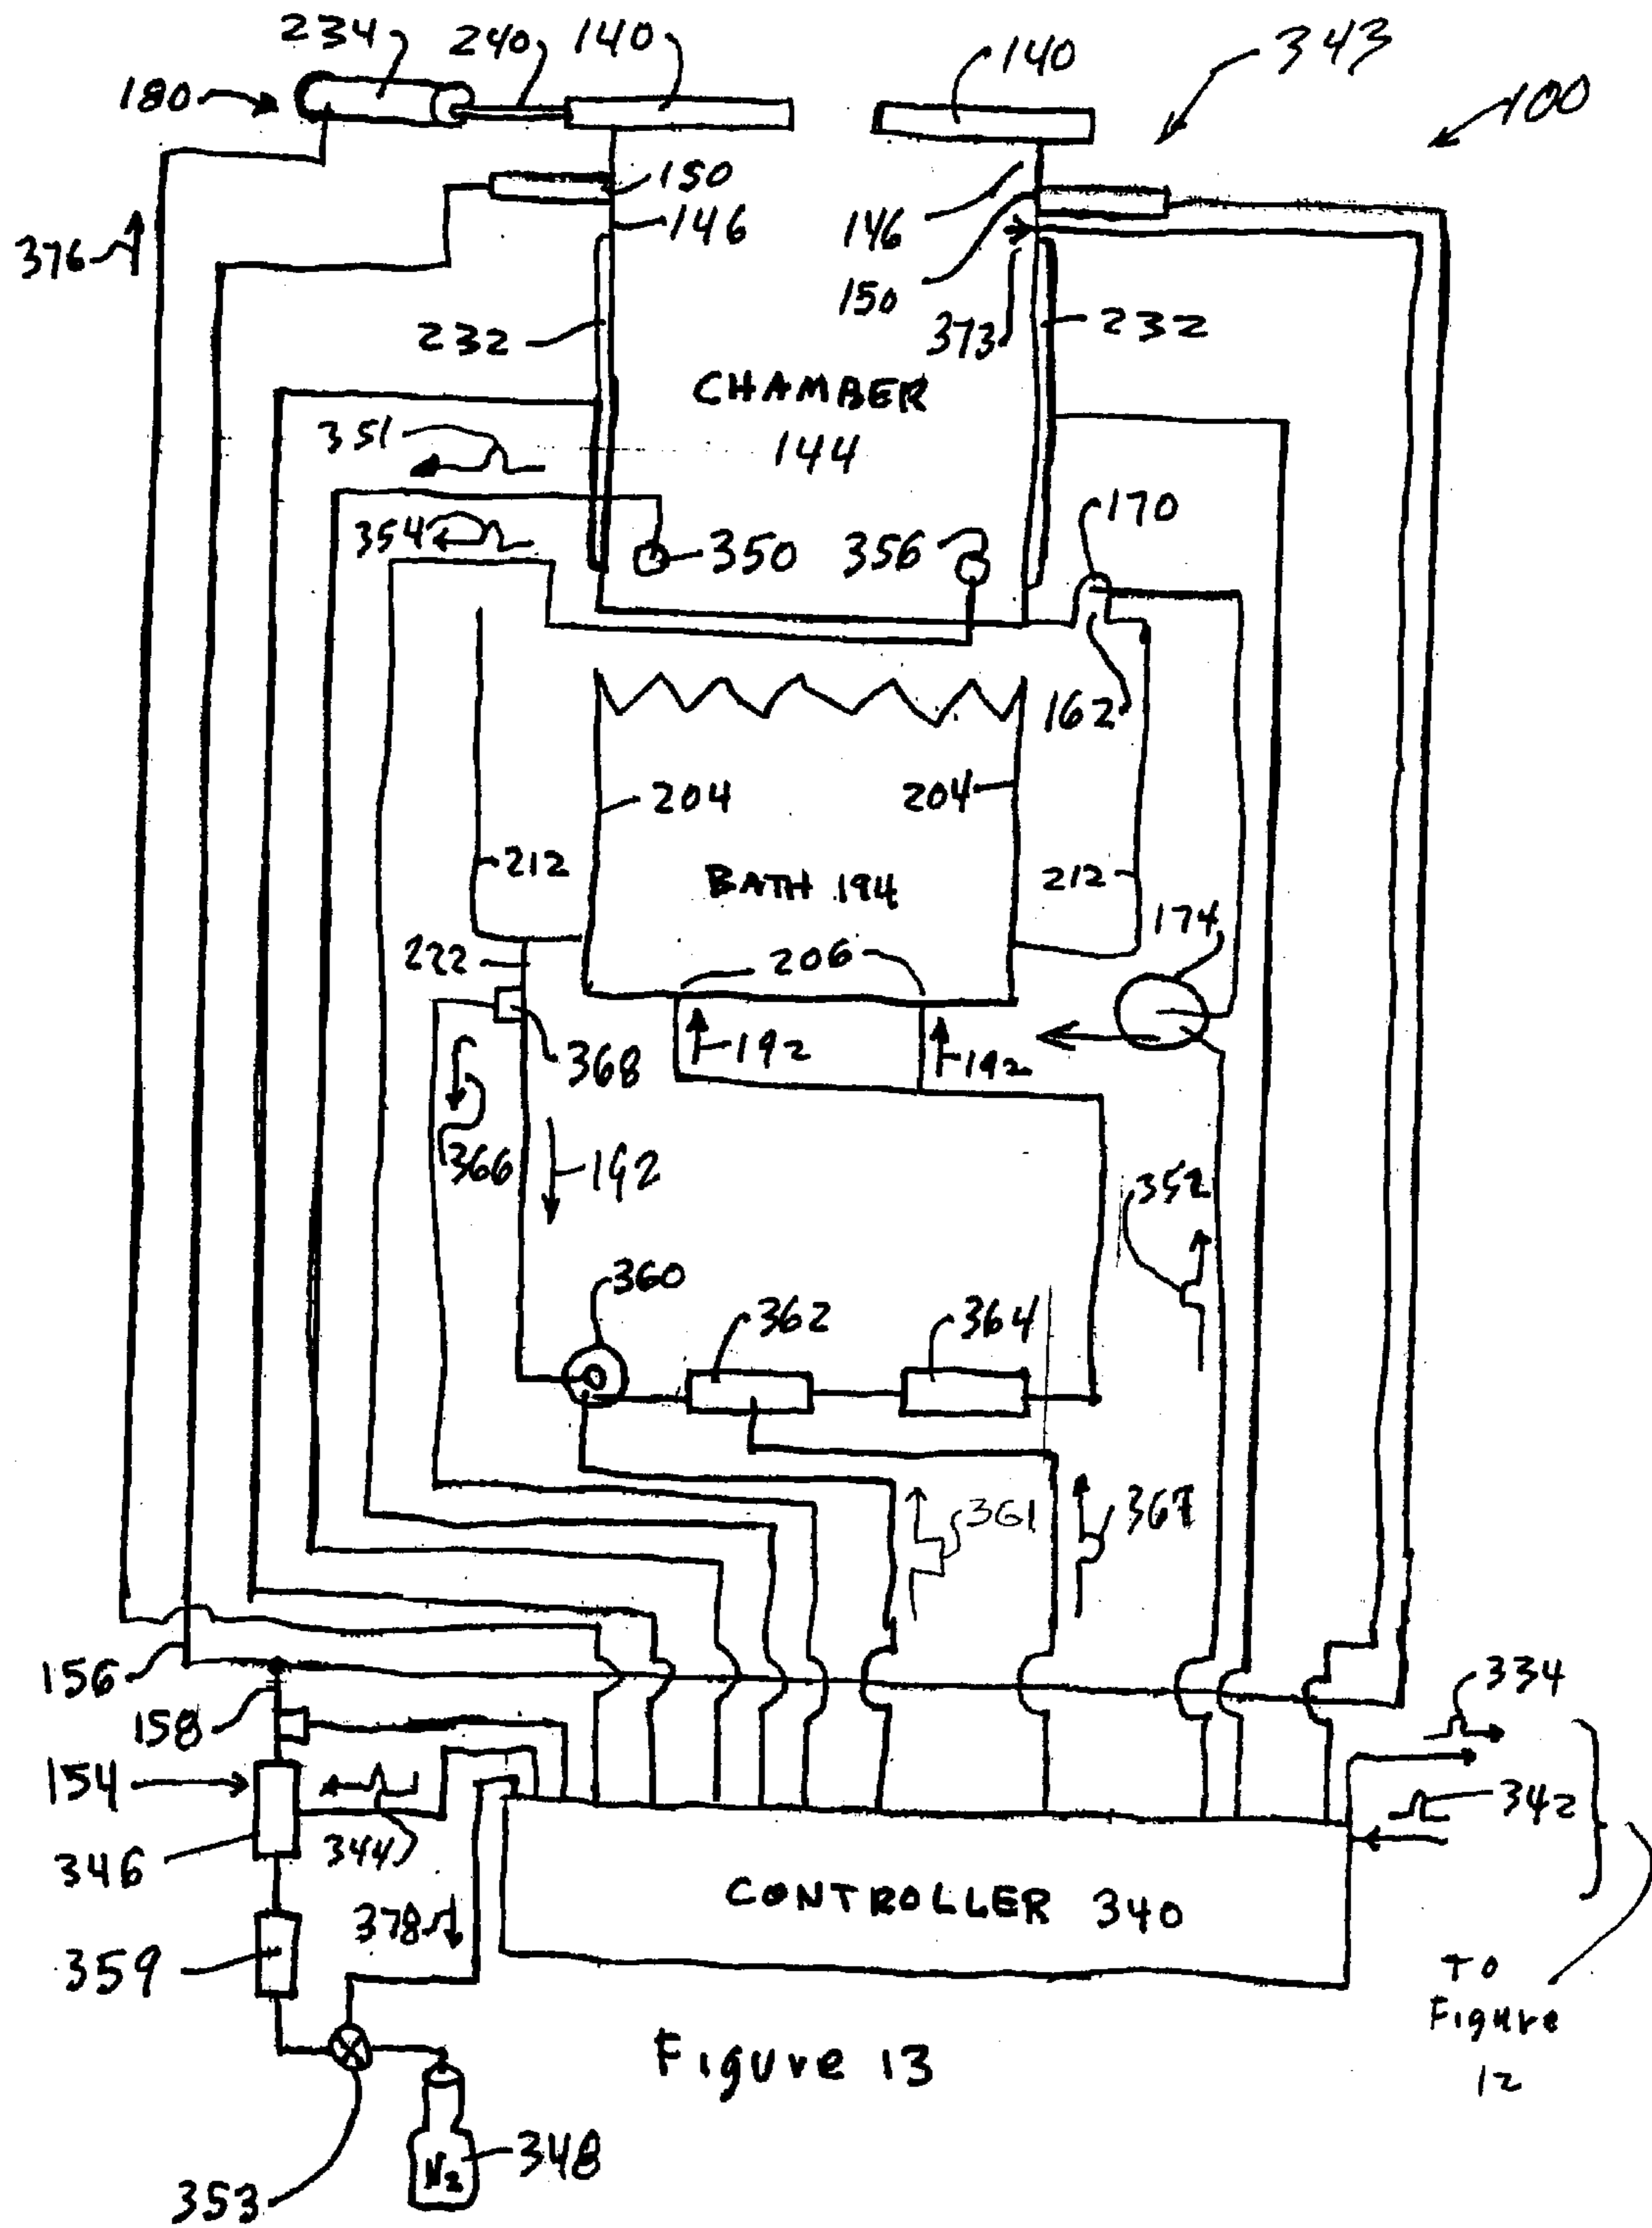 234
240
140
140
343
180
100
150
146
146
376
150
373
232
232
CHAMBER
144
351
170
354
350
356
162
204
204
212
BATH 194
212
174
222
206
368
192
192
366
192
352
360
362
364
361
367
156
158
334
154
342
344
346
CONTROLLER 340
378
359
TO
Figure
12
Figure 13
N2
348
353